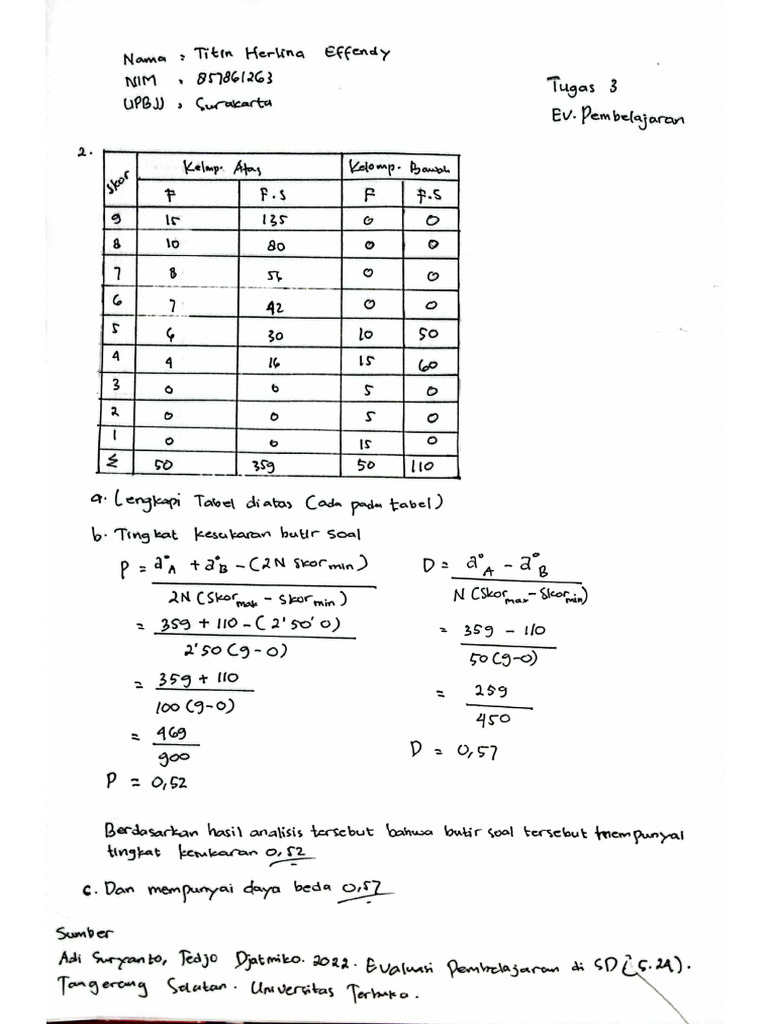 Nama : Titin Herlina Effendy
NIM : 857861263
UPBJJ : Surakarta
Tugas 3
Ev. Pembelajaran
2.
Skor Kelmp. Atas Kelomp. Bawah
F F.S F F.S
9 15 135 0 0
8 10 80 0 0
7 8 56 0 0
6 7 42 0 0
5 6 30 10 50
4 4 16 15 60
3 0 0 5 0
2 0 0 5 0
1 0 0 15 0
Σ 50 359 50 110
a. Lengkapi Tabel diatas (ada pada tabel)
b. Tingkat kesukaran butir soal
P = a°A + a°B - (2N Skor min) / 2N (Skor mak - Skor min)
= 359 + 110 - (2'50'0) / 2'50 (9-0)
= 359 + 110 / 100 (9-0)
= 469 / 900
P = 0,52
D = a°A - a°B / N (Skor max - Skor min)
= 359 - 110 / 50 (9-0)
= 259 / 450
D = 0,57
Berdasarkan hasil analisis tersebut bahwa butir soal tersebut mempunyai
tingkat kesukaran 0,52
c. Dan mempunyai daya beda 0,57
Sumber
Adi Suryanto, Tedjo Djatmiko. 2022. Evaluasi Pembelajaran di SD (5.24).
Tangerang Selatan. Universitas Terbuka.